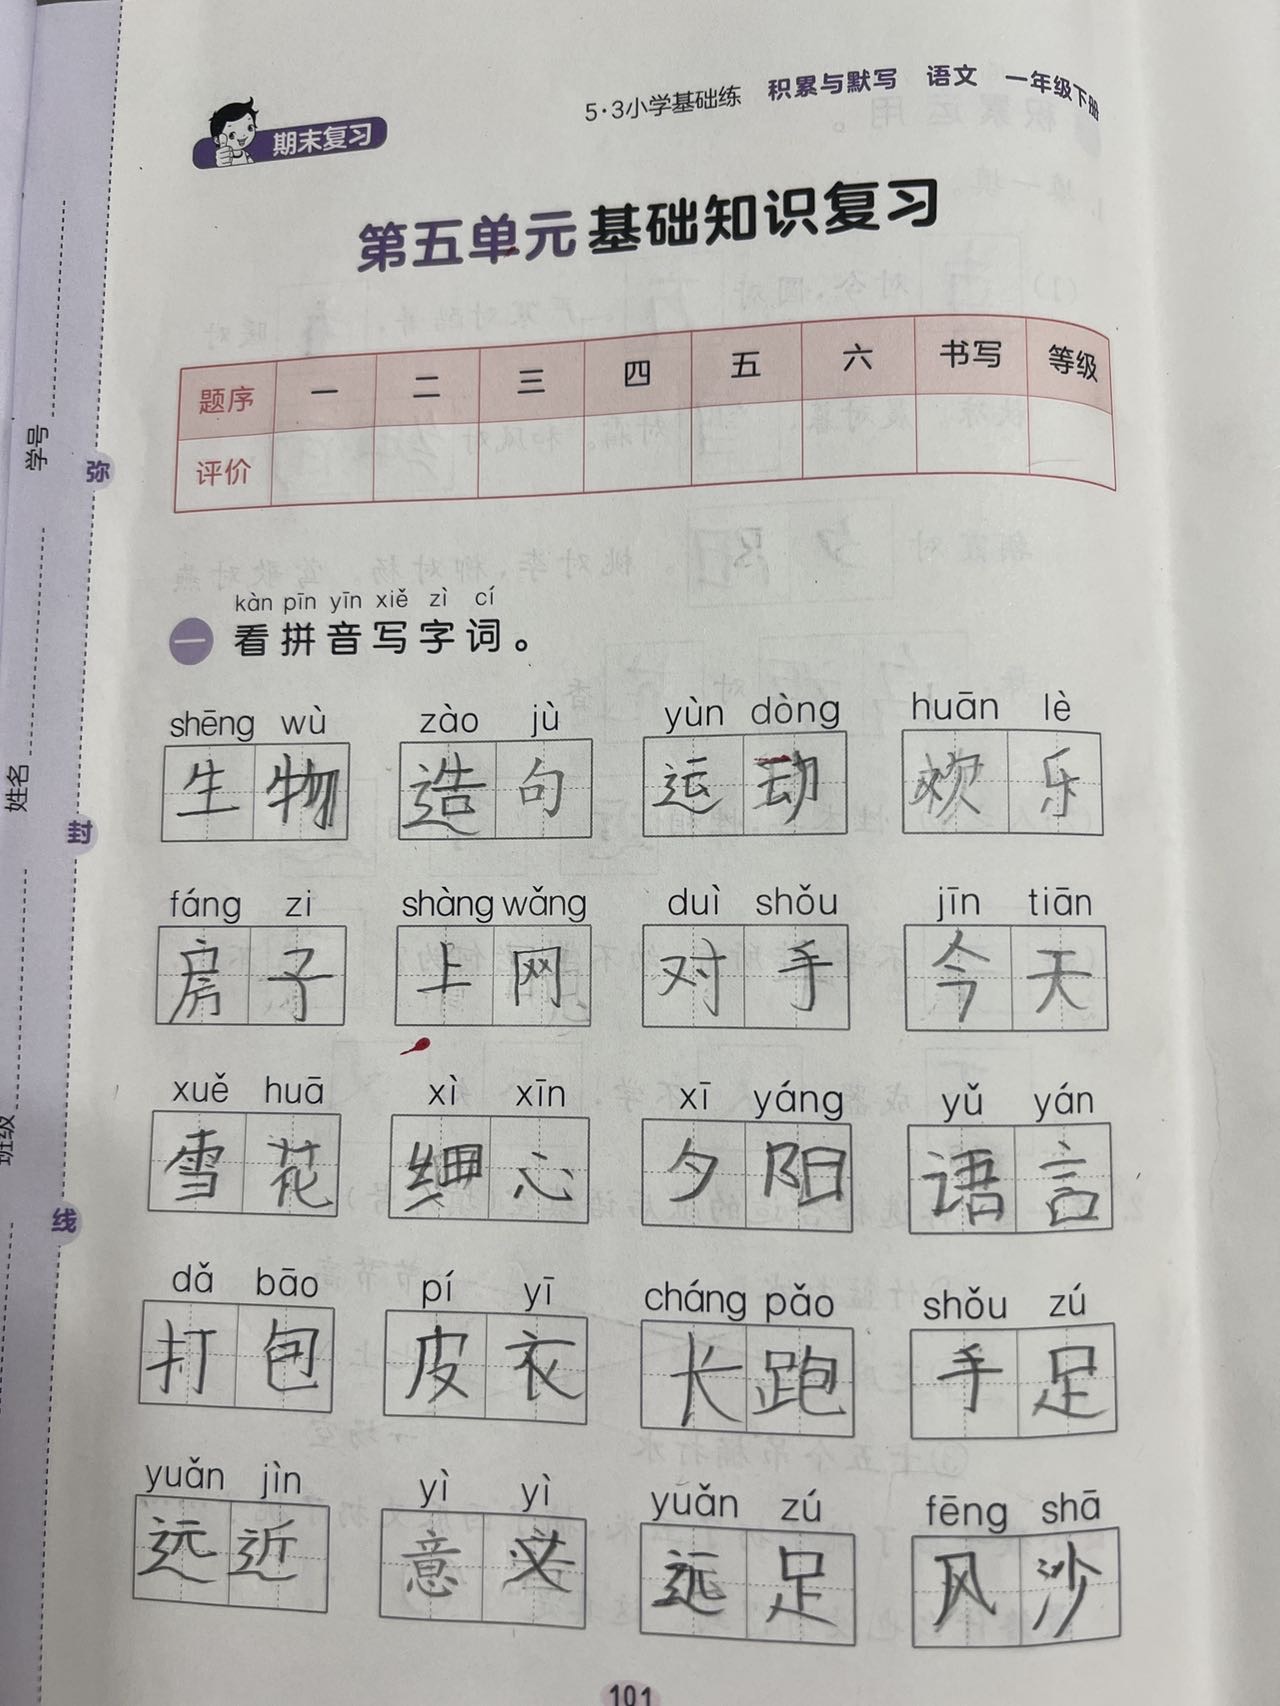 5·3小学基础练 积累与默写 语文 一年级下册
期末复习
第五单元基础知识复习
题序 一 二 三 四 五 六 书写 等级
评价
学号
姓名
班级
弥
封
线
kàn pīn yīn xiě zì cí
一 看拼音写字词。
shēng wù zào jù yùn dòng huān lè
生物 造句 运动 欢乐
fáng zi shàng wǎng duì shǒu jīn tiān
房子 上网 对手 今天
xuě huā xì xīn xī yáng yǔ yán
雪花 细心 夕阳 语言
dǎ bāo pí yī cháng pǎo shǒu zú
打包 皮衣 长跑 手足
yuǎn jìn yì yì yuǎn zú fēng shā
远近 意义 远足 风沙
101